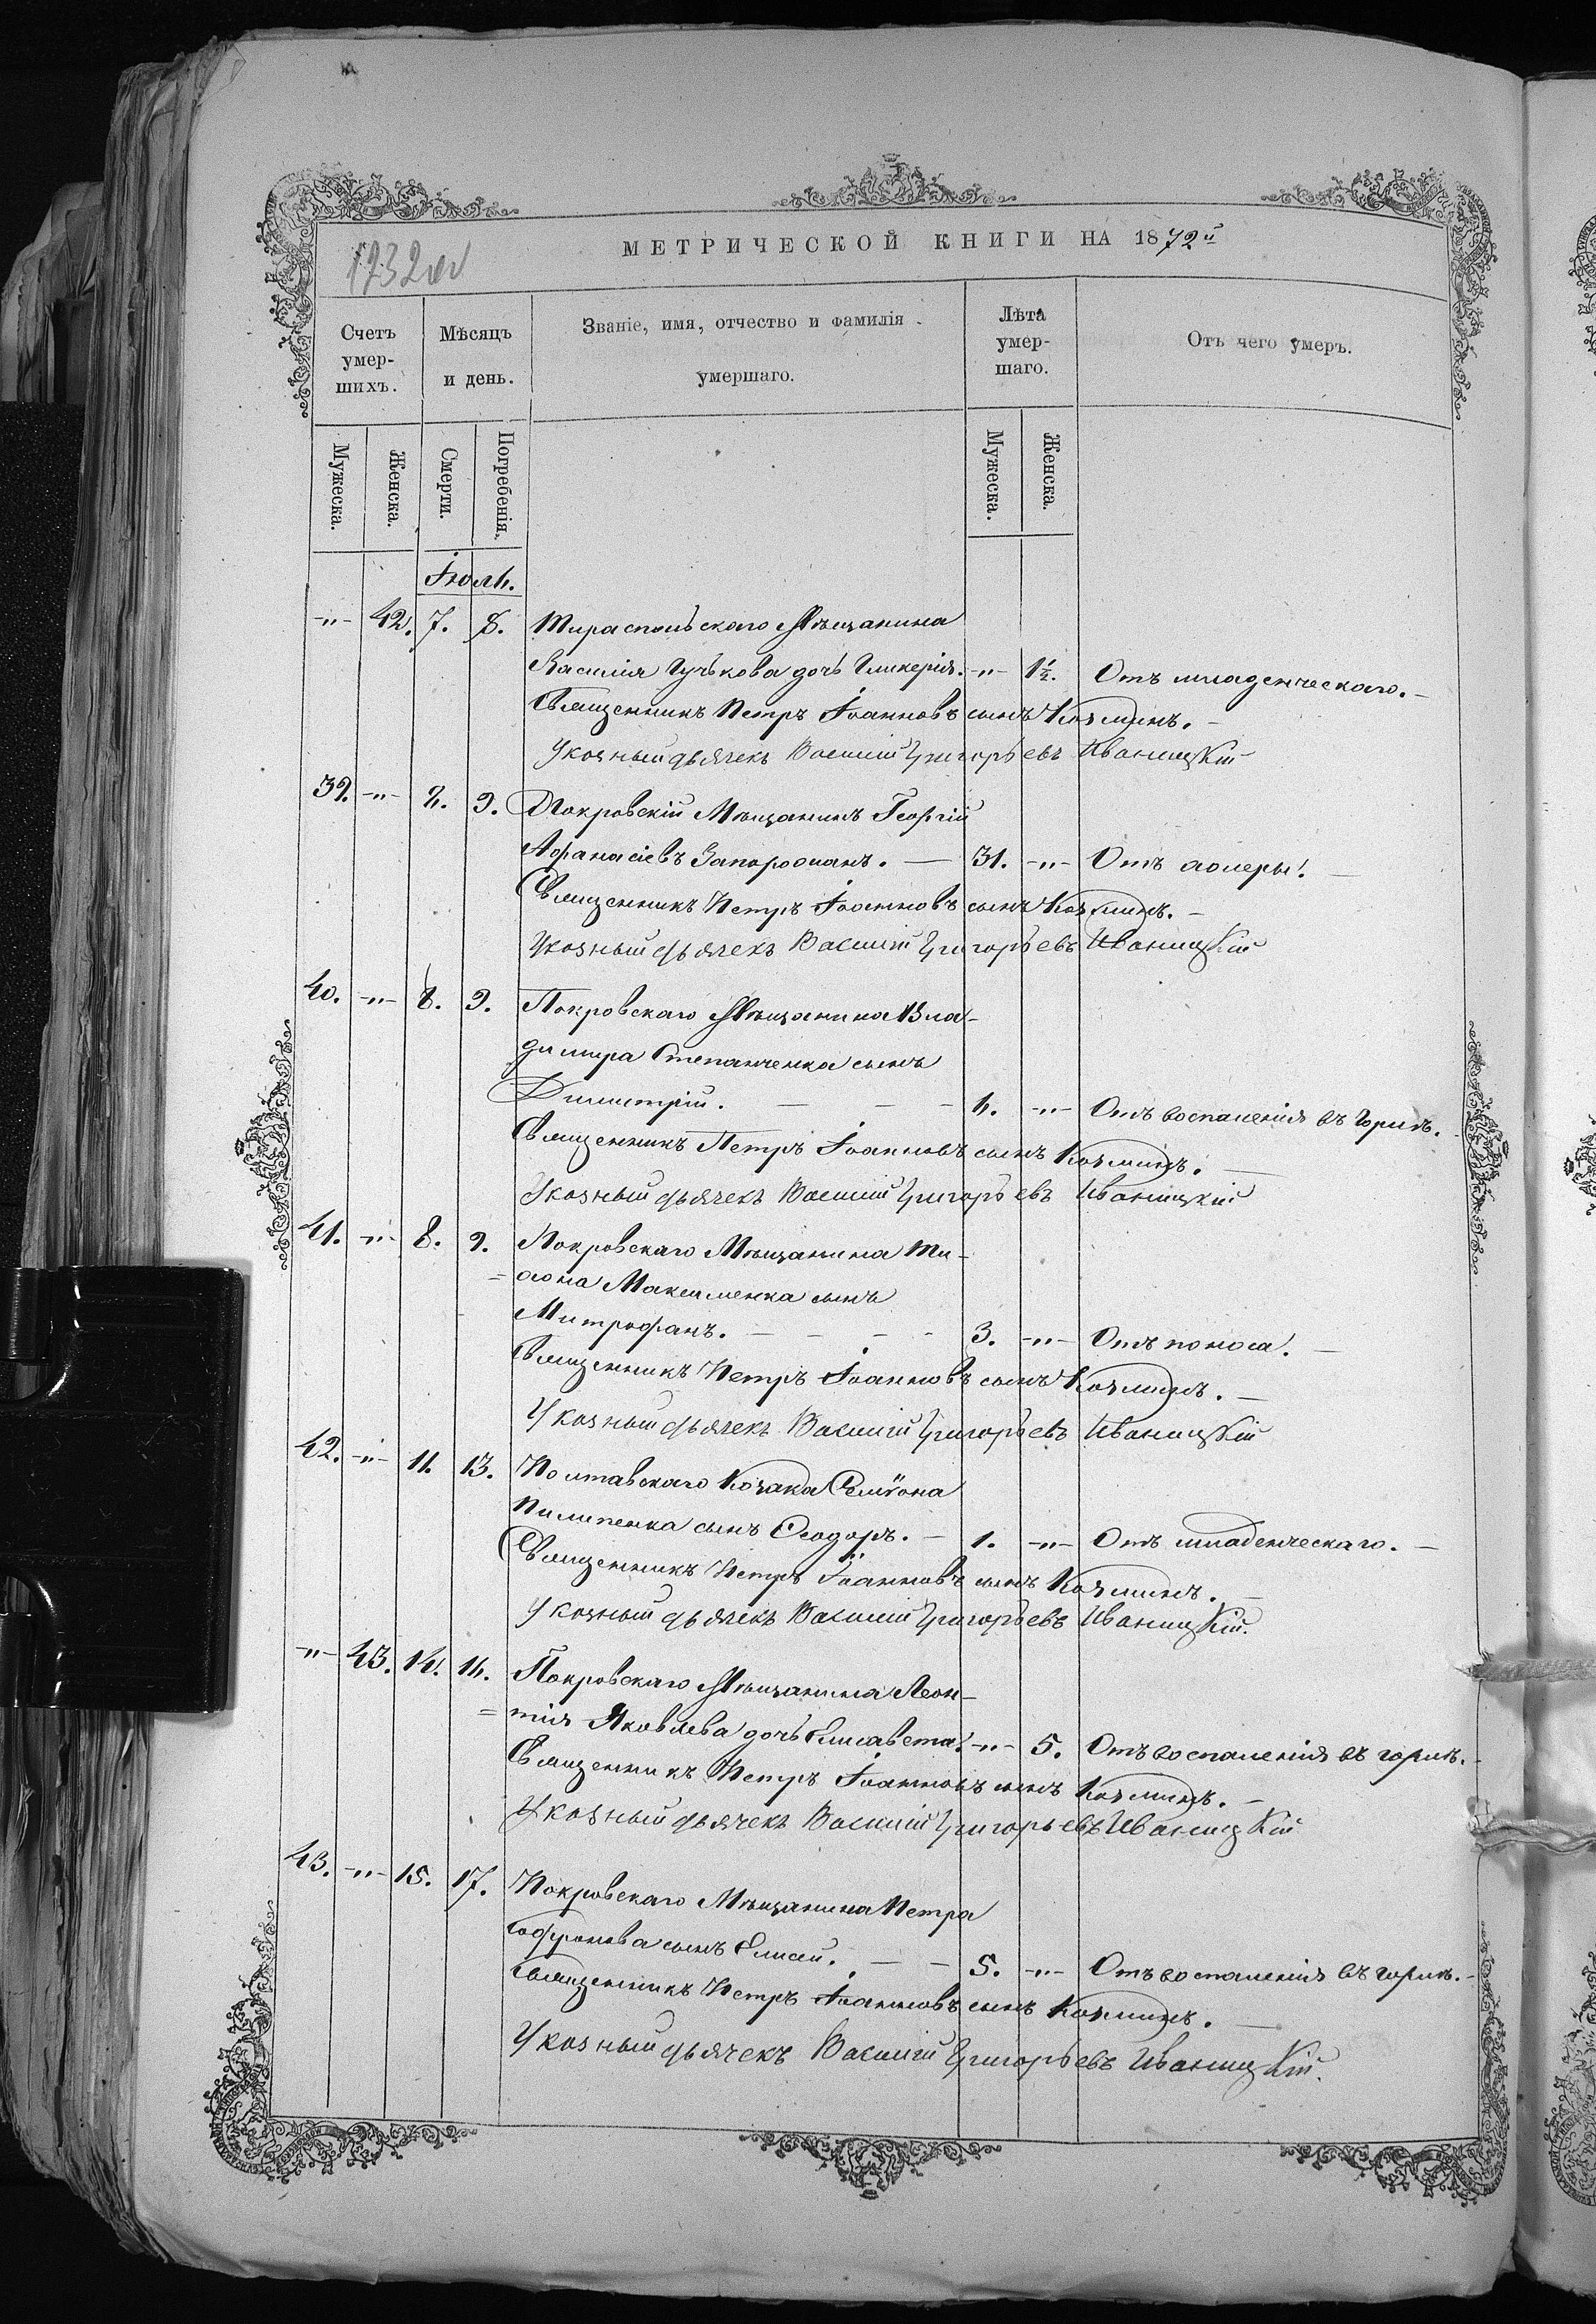 1232 об
МЕТРИЧЕСКОЙ КНИГИ НА 1872й
Счетъ умер-шихъ.
Мѣсяцъ и день.
Званіе, имя, отчество и фамилія умершаго.
Лѣта умер-шаго.
Отъ чего умеръ.
Мужеска. Женска. Смерти. Погребенія. Мужеска. Женска.
Іюль.
-"- 42. 7. 8. Тираспольскаго Мѣщанина
Василія Гучькова дочь Гликерія. -"- 1½. Отъ младенческаго.-
Священникъ Петръ Іоанновъ сынъ Козминъ.-
Указный дьячекъ Василій Григорьевъ Иваницкій
39. -"- 8. 9. Покровскій Мѣщанинъ Георгій
Афанасіевъ Запорожанъ. — 31. -"- Отъ холеры.
Священникъ Петръ Іоанновъ сынъ Козминъ.-
Указный дьячекъ Василій Григорьевъ Иваницкій
40. -"- 8. 9. Покровскаго Мѣщанина Вла-
диміра Степанченка сынъ
Димитрій. — — - 4. -"- Отъ воспаленія въ горлѣ.
Священникъ Петръ Іоанновъ сынъ Козминъ.
Указный дьячекъ Василій Григорьевъ Иваницкій
41. -"- 8. 9. Покровскаго Мѣщанина Ти-
=хона Максименка сынъ
Митрофанъ. - - - - 3. -"- Отъ поноса.
Священникъ Петръ Іоанновъ сынъ Козминъ.
Указный дьячекъ Василій Григорьевъ Иваницкій
42. -"- 11. 13. Полтавскаго Козака Семіона
Пилипенка сынъ Ѳеодоръ. - 1. -"- Отъ младенческаго. -
Священникъ Петръ Іоанновъ сынъ Козминъ.
Указный дьячекъ Василій Григорьевъ Иваницкій.
-"- 43. 14. 16. Покровскаго Мѣщанина Леон-
=тія Яковлева дочь Елисавета. -"- 5. Отъ воспаленія въ горлѣ.
Священникъ Петръ Іоанновъ сынъ Козминъ.-
Указный дьячекъ Василій Григорьевъ Иваницкій
43. -"- 15. 17. Покровскаго Мѣщанина Петра
Софронова сынъ Елисей. - - 5. -"- Отъ воспаленія въ горлѣ.
Священникъ Петръ Іоанновъ сынъ Козминъ.
Указный дьячекъ Василій Григорьевъ Иваницкій.